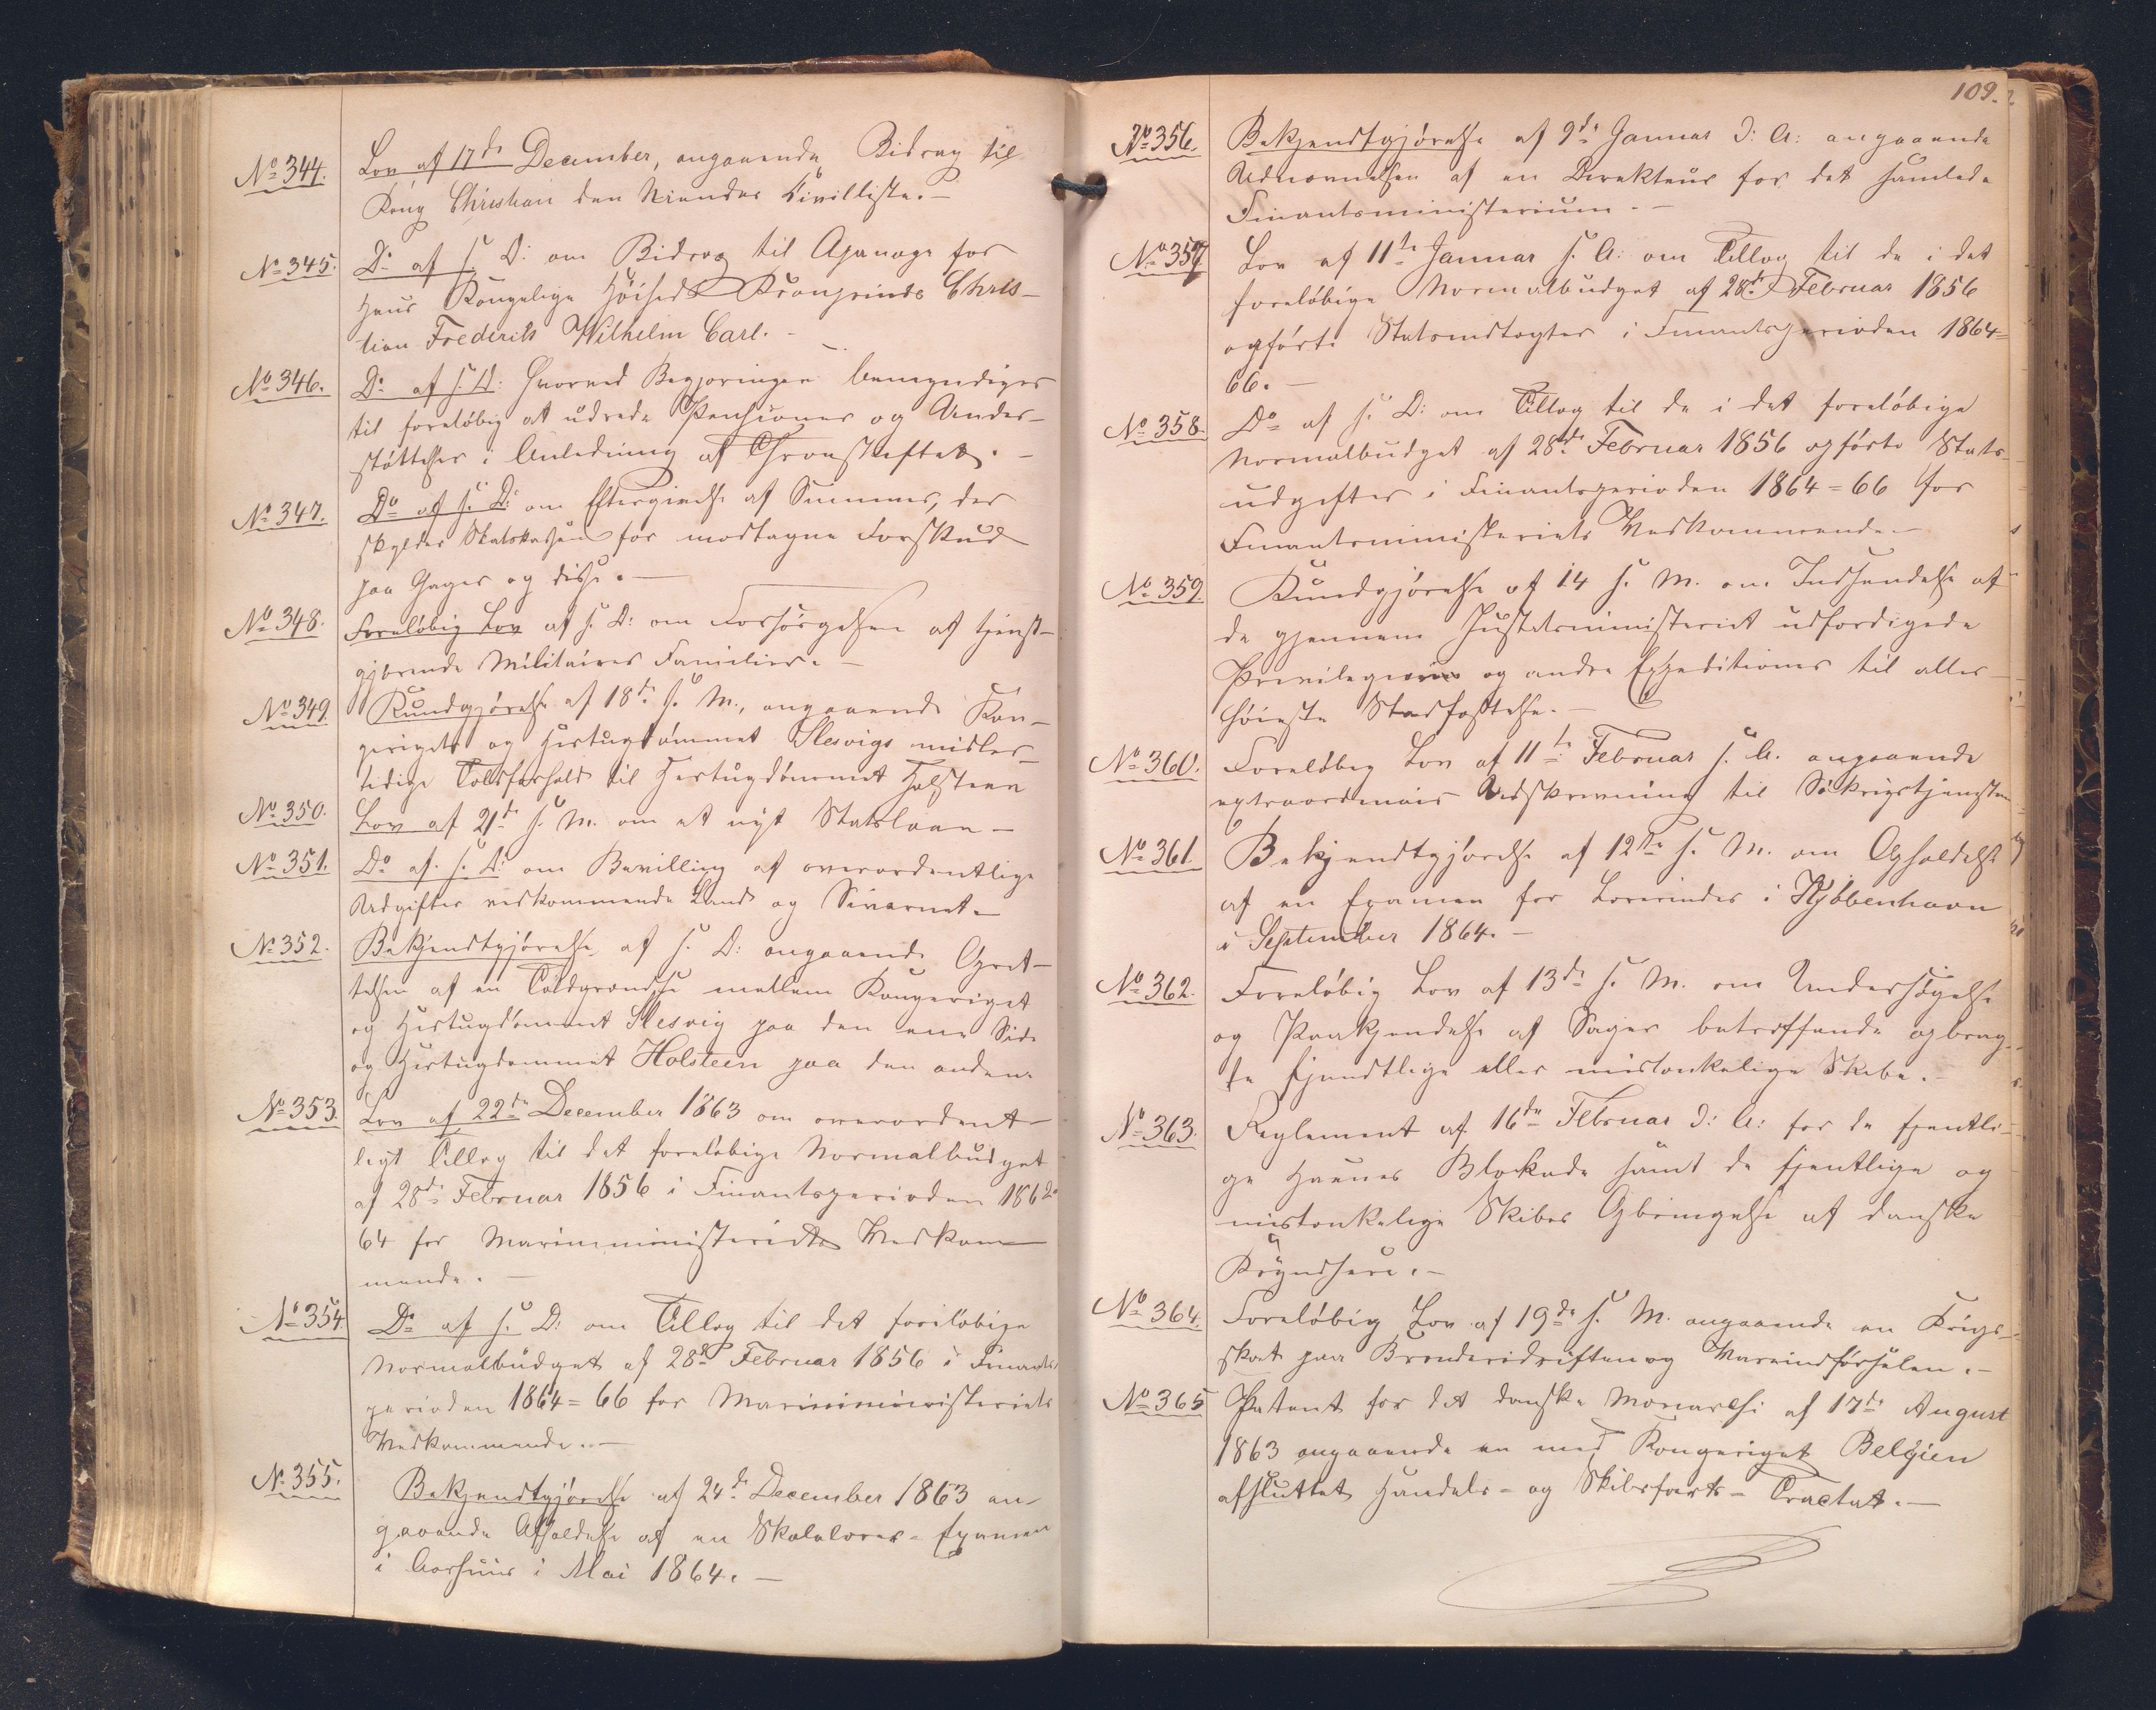 No 344. Lov af 17de December, angaaende Bidrag til
Kong Christian den Niendes Civilliste. –
No 345. Do af s. D: om Bidrag til Apanage for
Hans Kongelige Høihed Kronprinds Chris-
tian Frederik Wilhelm Carl. –
No 346. Do af s. D: hvorved Regjeringen bemyndiges
til foreløbig at udrede Pensioner og Under-
støttelser i Anledning af Thronskiftet. –
No 347. Do af s. D: om Eftergivelse af Summer, der
skyldes Statskassen for modtagne Forskud
paa Gager og disse. –
No 348. Foreløbig Lov af s. D: om Forsørgelsen af tjenst-
gjørende Militaires Familier. –
No 349. Kundgjørelse af 18de s. M., angaaende Kon-
gerigets og Hertugdømmet Slesvigs midler-
tidige Toldforhold til Hertugdømmet Holsteen
No 350. Lov af 21de s. M. om et nyt Statslaan –
No 351. Do af s. D: om Bevilling af overordentlige
Udgifter vedkommende Land og Søværnet. –
No 352. Bekjendtgjørelse af s. D: angaaende Opret-
telsen af en Toldgrændse mellem Kongeriget
og Hertugdømmet Slesvig paa den ene Side
og Hertugdømmet Holsteen paa den anden.
No 353. Lov af 22de December 1863 om overordent-
ligt Tillæg til det foreløbige Normalbudget
af 28de Februar 1856 i Finantsperioden 1862=
64 for Marineministeriets Vedkom-
mende. –
No 354. Do af s. D: om Tillæg til det foreløbige
Normalbudget af 28de Februar 1856 i Finants-
perioden 1864=66 for Marineministeriets
Vedkommende. –
No 355. Bekjendtgjørelse af 24de December 1863 an-
gaaende Afholdelse af en Skolelærer-Examen
i Aarhuus i Mai 1864. –
109.
No 356. Bekjendtgjørelse af 9de Januar d: A: angaaende
Udnævnelsen af en Direkteur for det samlede
Finantsministerium. –
No 357 Lov af 11te Januar s. A: om Tillæg til de i det
foreløbige Normalbudget af 28de Februar 1856
opførte Statsindtægter i Finantsperioden 1864=
66. –
No 358. Do af s. D: om Tillæg til de i det foreløbige
Normalbudget af 28de Februar 1856 opførte Stats-
udgifter i Finantsperioden 1864=66 for
Finantsministeriets Vedkommende –
No 359. Kundgjørelse af 14 s. M. om Indsendelse af
de gjennem Justitsministeriet udfærdigede
Privilegier og andre Expeditioner til aller-
høieste Stadfæstelse. –
No 360. Foreløbig Lov af 11te Februar s. A. angaaende
extraordinair Udskrivning til Søkrigstjenesten
No 361. Bekjendtgjørelse af 12te s. M. om Afholdelse
af en Examen for Lærerinder i Kjøbbenhavn
i September 1864. –
No 362. Foreløbig Lov af 13de s. M. om Undersøgelse
og Paakjendelse af Sager betræffende opbrag-
te fjendtlige eller mistænkelige Skibe. –
No 363. Reglement af 16de Februar d: A: for de fjentli-
ge Havnes Blokade samt de fjentlige og
mistænkelige Skibes Opbringelse af danske
Krydsere. –
No 364. Foreløbig Lov af 19de s. M. angaaende en Krigs-
skat paa Brænderidriften og Vareindførselen. –
No 365 Patent for det danske Monarchi af 17de August
1863 angaaende en med Kongeriget Belgien
afsluttet Handels- og Skibsfarts-Tractat. –